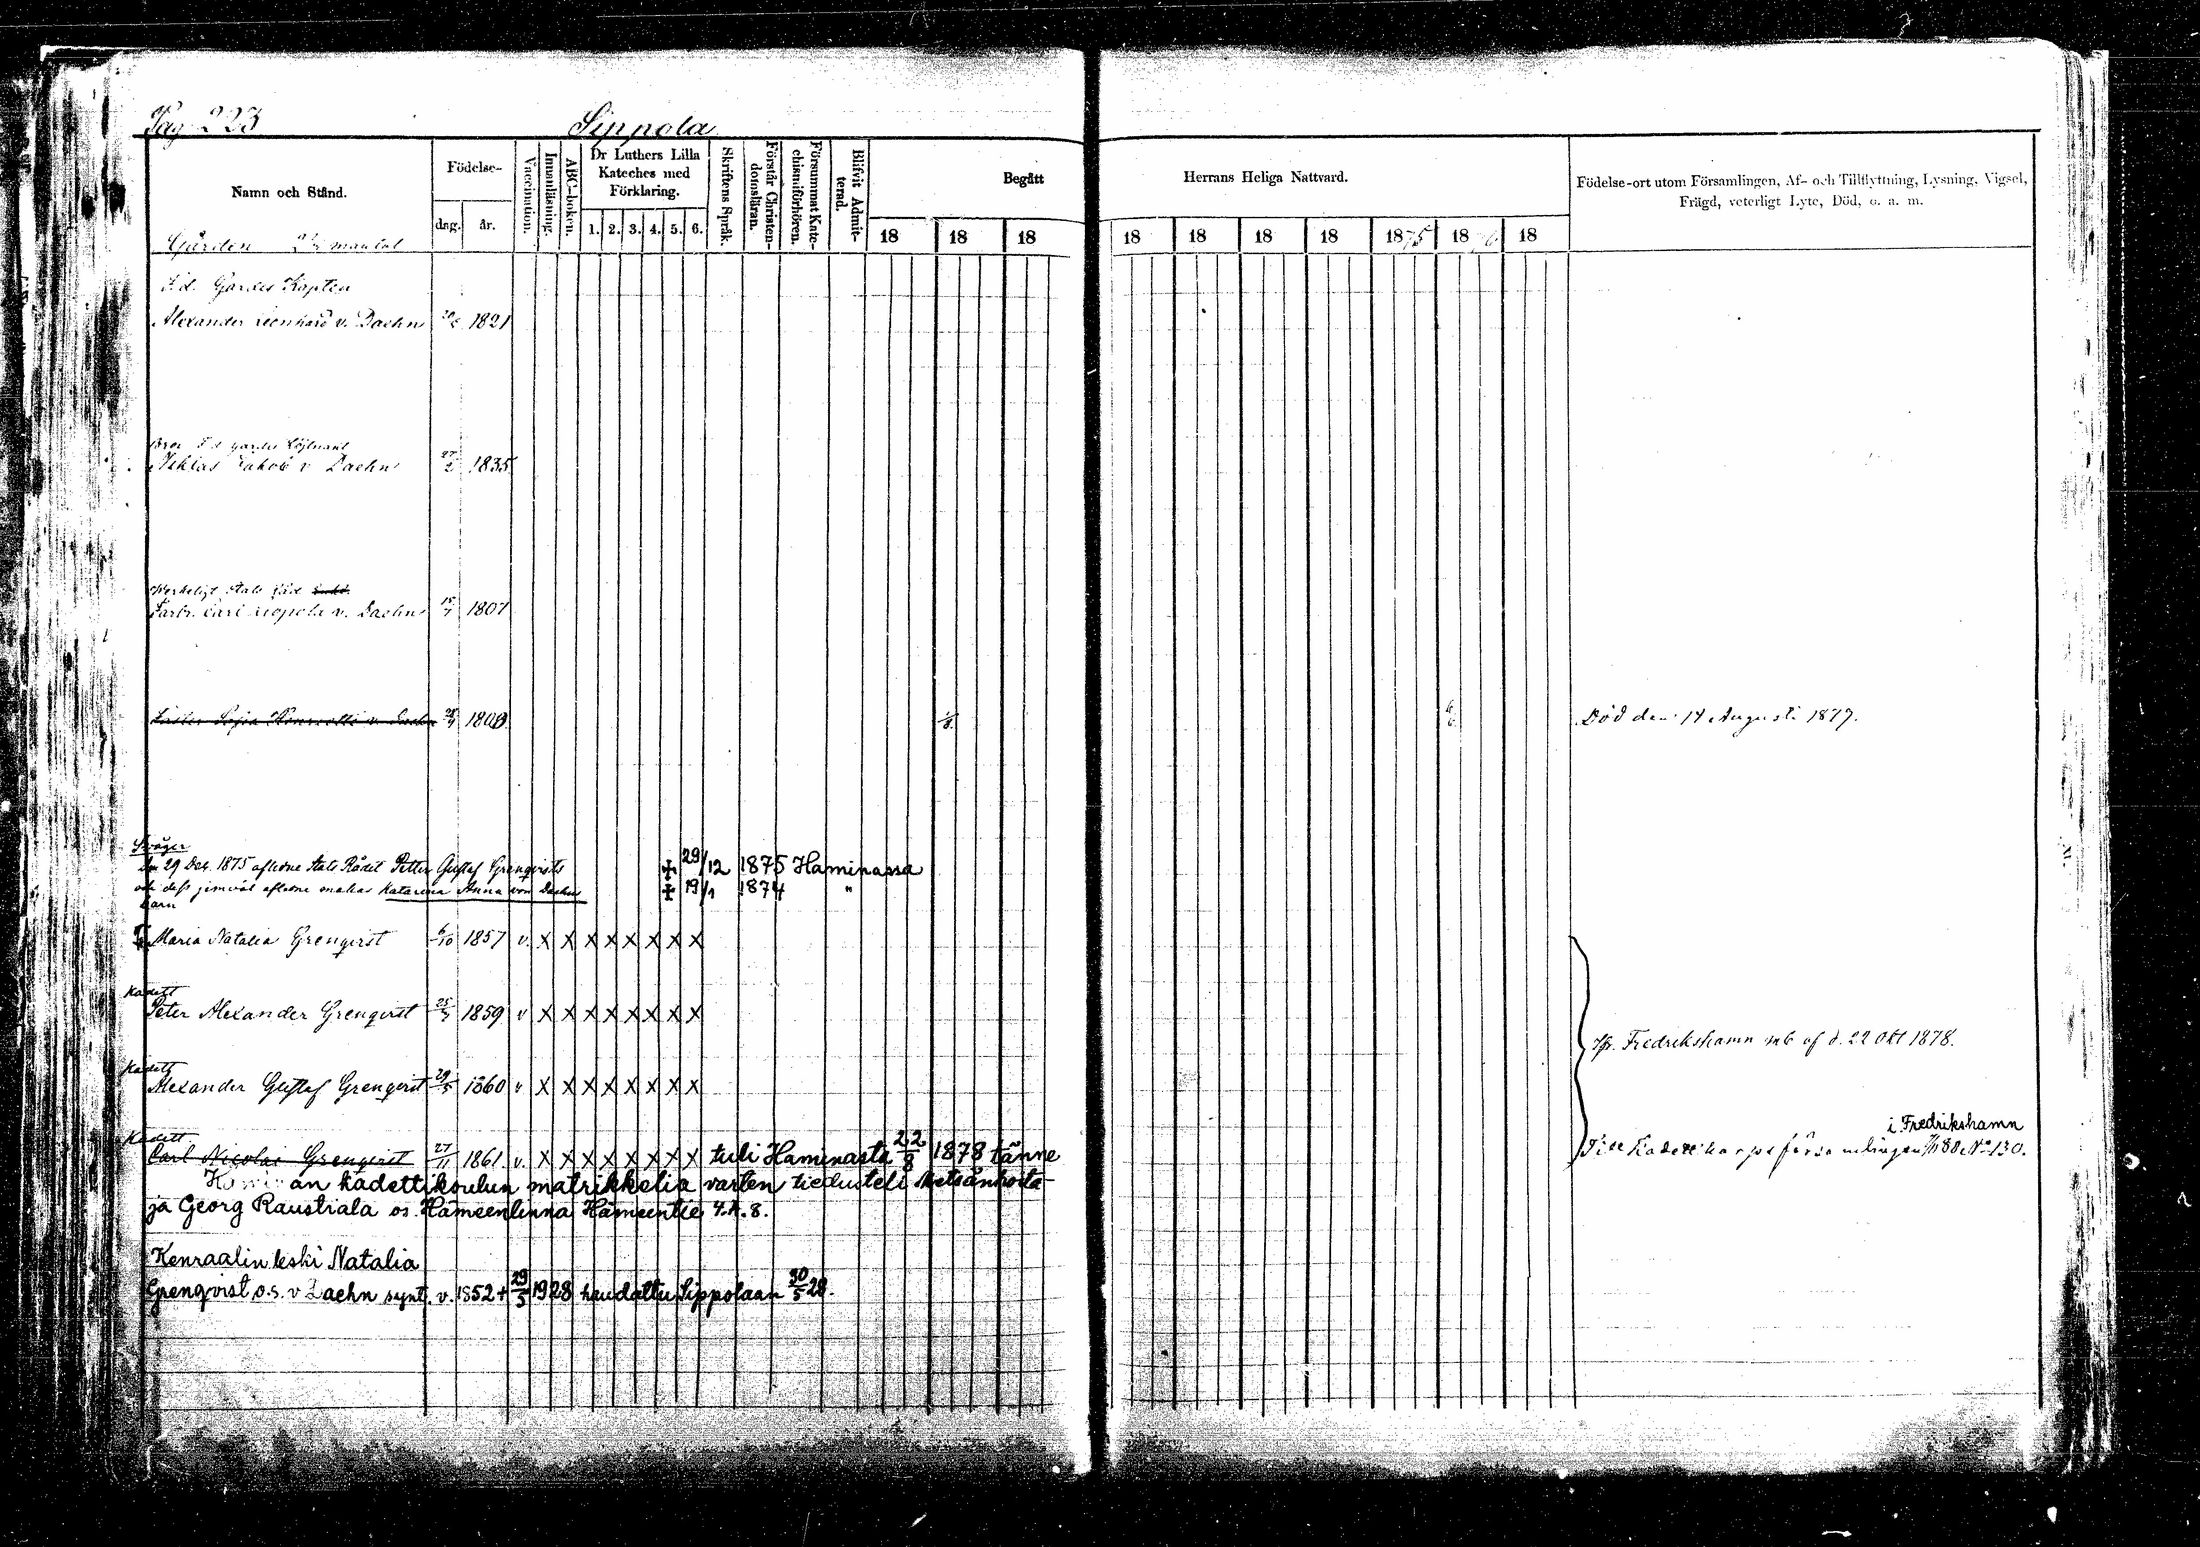 Pag 223
Sippola
Namn och Stånd.
Födelse-
dag.
år.
Vaccination.
Innanläsning.
ABC-boken.
Dr Luthers Lilla
Kateches med
Förklaring.
1. 2. 3. 4. 5. 6.
Skriftens Språk.
Förstår Christen-
domsläran.
Försummat Kate-
chismiförhören.
Blifvit Admit-
terad.
Begått
Herrans Heliga Nattvard.
18 18 18 18 18 18 18 1875 1876 18
Födelse-ort utom Församlingen, Af- och Tillflyttning, Lysning, Vigsel,
Frägd, veterligt Lyte, Död, o. a. m.
Gården mantal
F. d. Gardes Kapten
Alexander Leonhard v. Daehn 1821
Bror F d gardes Löjtnant
Niklas Jakob v Daehn 27/2 1835
Werkeligt Stats Råd
Farbr. Carl v. Daehn 1807
Sofia v. Daehn
Död den 14 Augusti 1877.
Svåger
Den 29 Dec. 1875 aflidne Stats Rådet Petter Gustaf Grenqvists ✝ 29/12 1875 Haminassa
och dess jemväl aflidne makas Katarina Anna von Daehns ✝ 19/1 1874 "
barn
Maria Natalia Grenqvist 6/10 1857 v. X X X X X X X X
Kadett
Peter Alexander Grenqvist 1859 v X X X X X X X X
Fredrikshamn mb af d. 22 Okt 1878.
Kadett
Alexander Gustaf Grenqvist 1860 v X X X X X X X X
i Fredrikshamn
Kadett
Carl Nicolai Grenqvist 27/11 1861. v. X X X X X X X X tuli Haminasta 22/8 1878 tänne
Till Kadettkorps församlingen 80 No 130.
Haminan kadettikoulun matrikkelia varten tiedusteli Metsänhoita-
ja Georg Raustiala os. Hämeenlinna Hämeentie 4.A.8.
Kenraalin leski Natalia
Grenqvist o.s. v Daehn synt. v. 1852 + 29/5 1928 haudattu Sippolaan 30/5 28.